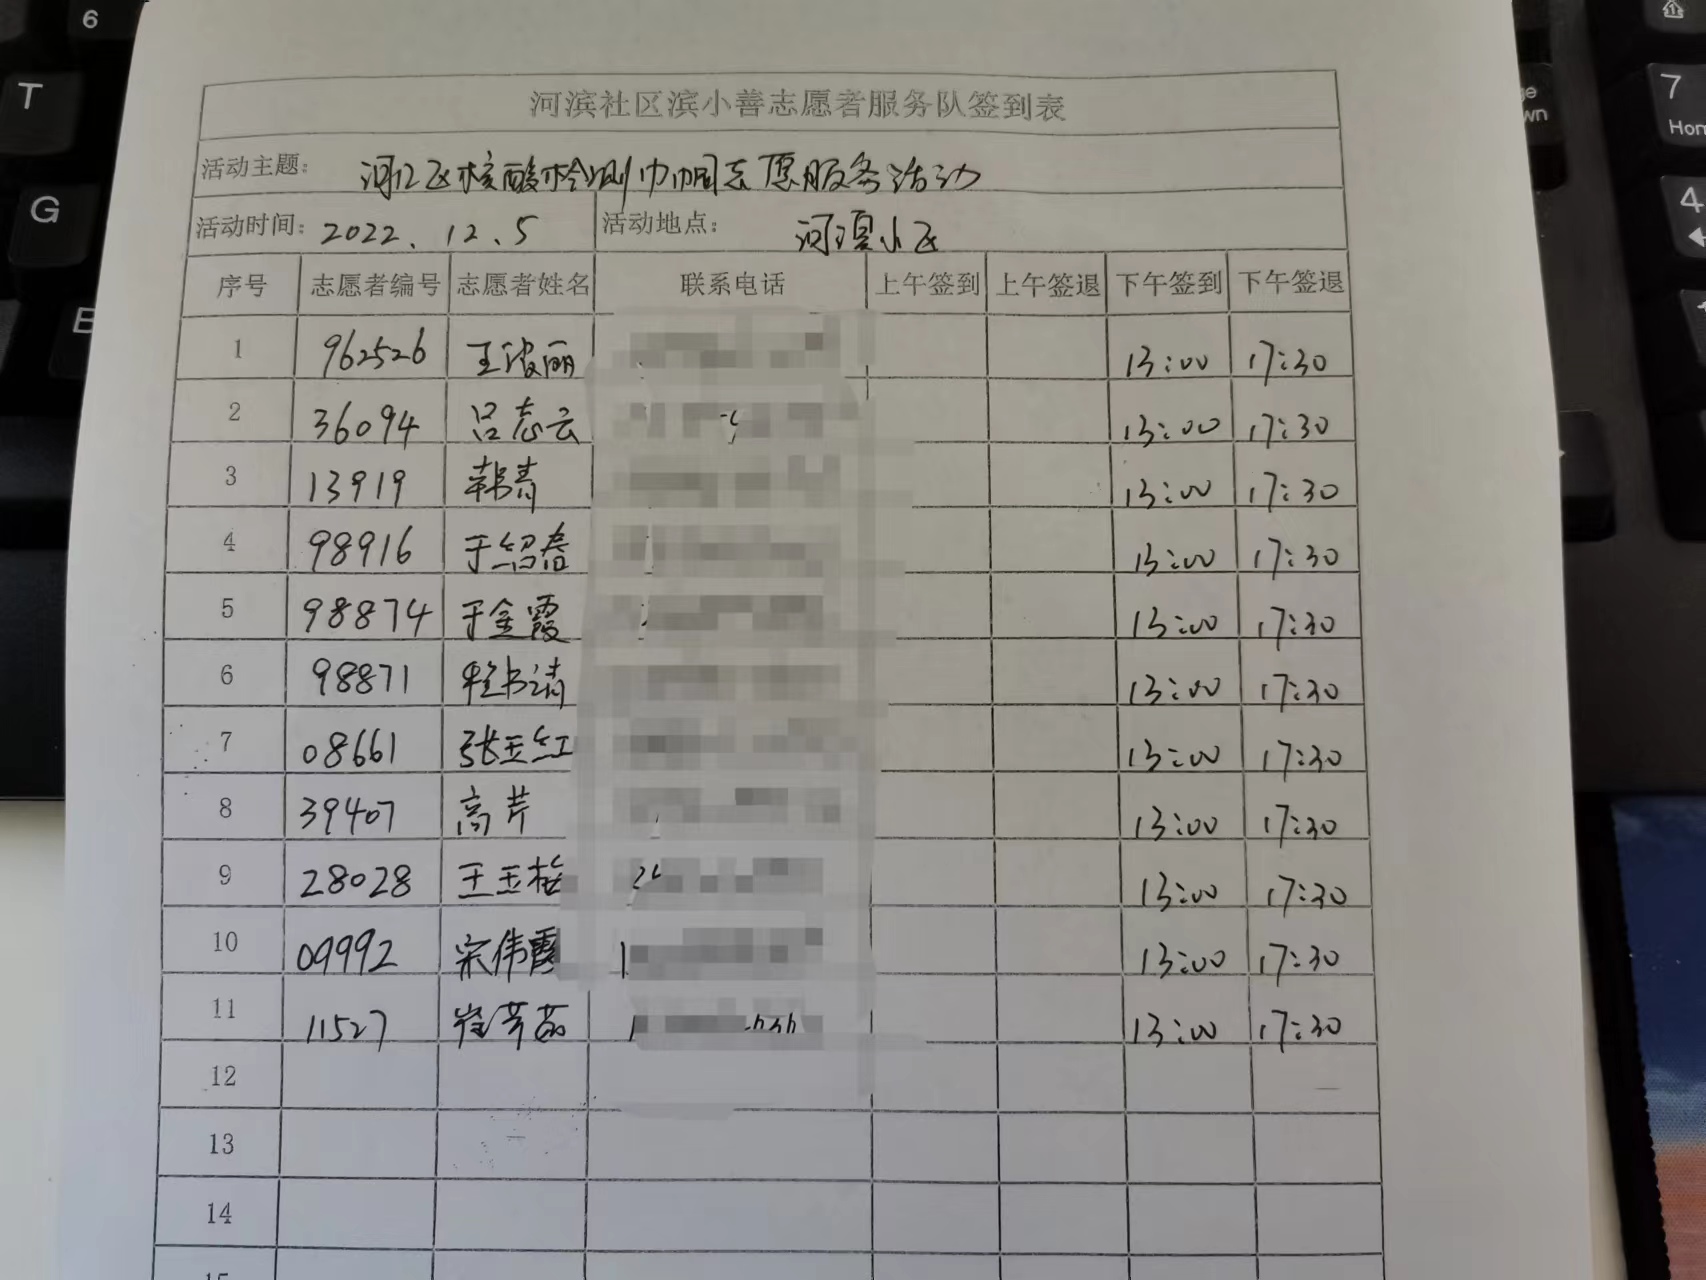 河滨社区滨小善志愿者服务队签到表
活动主题： 核酸检测巾帼志愿服务活动
活动时间：2022.12.5 活动地点： 小区
序号 志愿者编号 志愿者姓名 联系电话 上午签到 上午签退 下午签到 下午签退
1 962526 王波丽 13:00 17:30
2 36094 吕志云 13:00 17:30
3 13919 韩青 13:00 17:30
4 98916 于绍春 13:00 17:30
5 98874 于金霞 13:00 17:30
6 98871 13:00 17:30
7 08661 张玉红 13:00 17:30
8 39407 高芹 13:00 17:30
9 28028 王玉梅 13:00 17:30
10 09992 宋伟霞 13:00 17:30
11 11527 13:00 17:30
12
13
14
15
6
T
G
7
Home
4